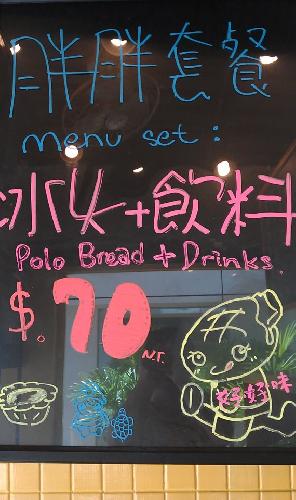 胖胖套餐
menu set:
冰火+飲料
Polo Bread + Drinks
$.70 N.T.
好好味